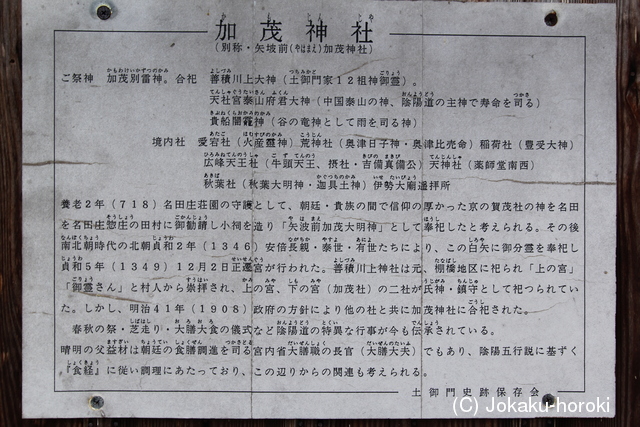 加茂神社
(別称・矢坡前(やはまえ)加茂神社)
ご祭神　加茂別雷神。合祀　善積川上大神(土御門家12祖神御霊)。
天社宮泰山府君大神(中国泰山の神、陰陽道の主神で寿命を司る)
貴船闇龗神(谷の竜神として雨を司る神)
境内社　愛宕社(火産霊神)荒神社(奥津日子神・奥津比売命)稲荷社(豊受大神)
広峰天王社(牛頭天王、摂社・吉備真備公)天神社(薬師堂南西)
秋葉社(秋葉大明神・迦具土神)伊勢大廟遥拝所
養老2年(718)名田庄荘園の守護として、朝廷・貴族の間で信仰の厚かった京の賀茂社の神を名田
を名田庄惣庄の田村に御勧請し小祠を造り「矢波前加茂大明神」として奉祀したと考えられる。その後
南北朝時代の北朝貞和2年(1346)安倍長親・泰世・有世たちにより、この白矢に御分霊を奉祀し
貞和5年(1349)12月2日正遷宮が行われた。善積川上神社は元、棚橋地区に祀られ「上の宮」
「御霊さん」と村人から崇拝され、上の宮、下の宮(加茂社)の二社が氏神・鎮守として祀つられてい
た。しかし、明治41年(1908)政府の方針により他の社と共に加茂神社に合祀された。
春秋の祭・芝走り・大膳大食の儀式など陰陽道の特異な行事が今も伝承されている。
晴明の父益材は朝廷の食膳調進を司る宮内省大膳職の長官(大膳大夫)でもあり、陰陽五行説に基ずく
『食経』に従い調理にあたっており、この辺りからの関連も考えられる。
土御門史跡保存会
(C) Jokaku-horoki